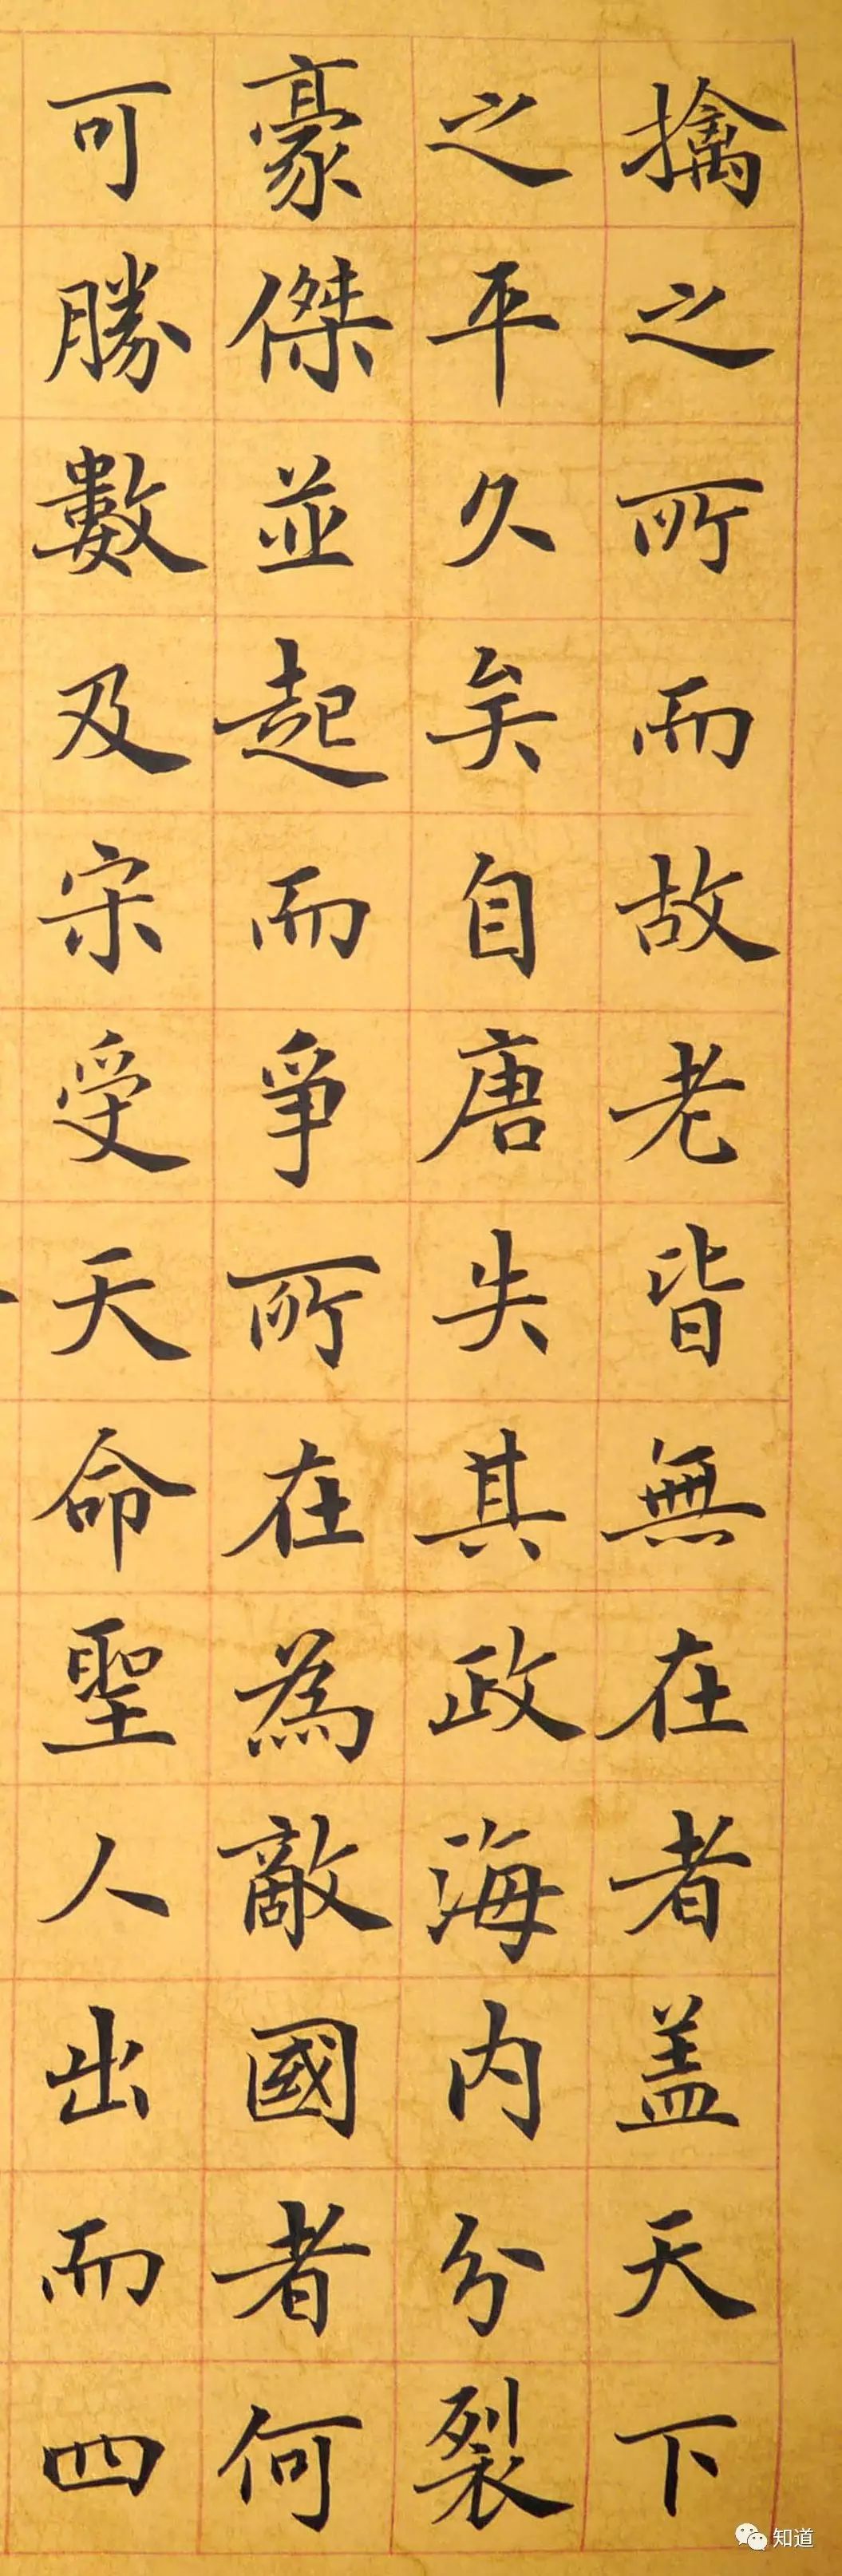 擒之所而故老皆無在者盖天下
之平久矣自唐失其政海内分裂
豪傑並起而爭所在為敵國者何
可勝數及宋受天命聖人出而四
知道